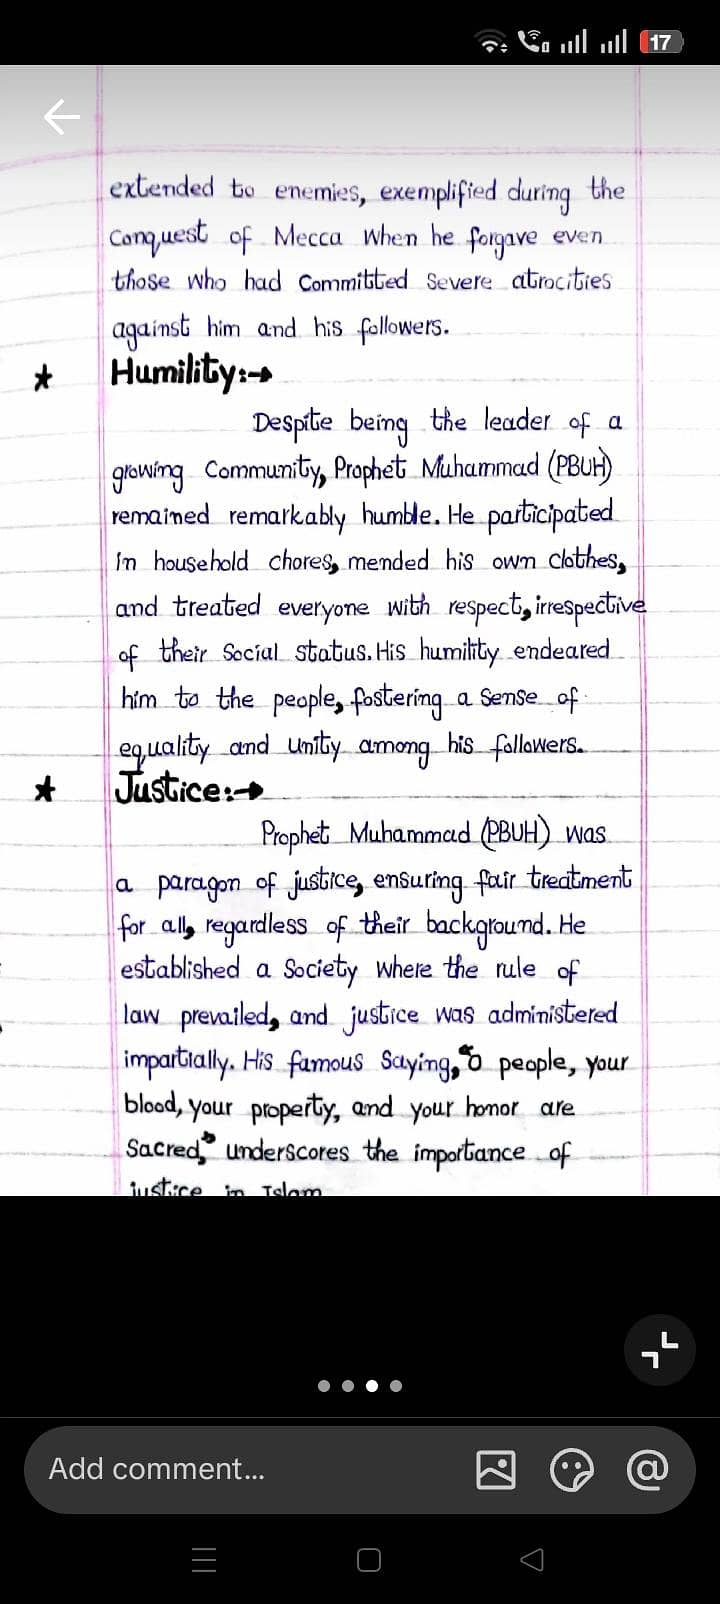 17
extended to enemies, exemplified during the
Conquest of Mecca when he forgave even
those who had Committed Severe atrocities
against him and his followers.
★ Humility:→
Despite being the leader of a
growing Community, Prophet Muhammad (PBUH)
remained remarkably humble. He participated
In household chores, mended his own clothes,
and treated everyone with respect, irrespective
of their Social status. His humility endeared
him to the people, fostering a Sense of
equality and unity among his followers.
★ Justice:→
Prophet Muhammad (PBUH) was
a paragon of justice, ensuring fair treatment
for all, regardless of their background. He
established a Society where the rule of
law prevailed, and justice was administered
impartially. His famous Saying, "O people, your
blood, your property, and your honor are
Sacred," underscores the importance of
justice in Islam
Add comment...